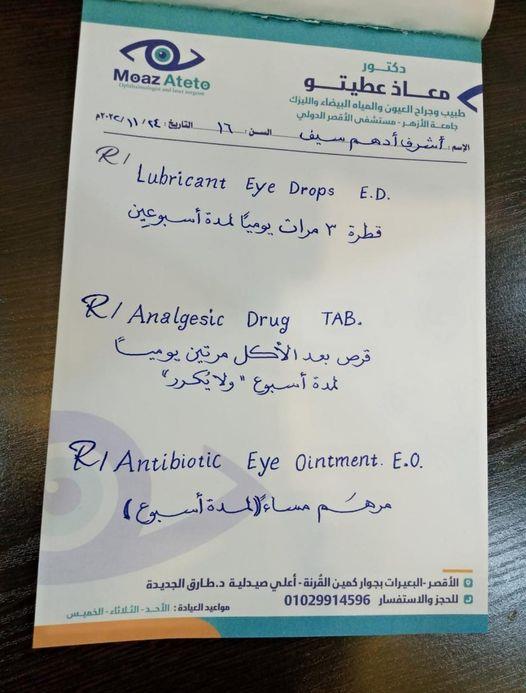 Moaz Ateto
Ophthalmologist and laser surgeon
دكتور
معاذ عطيتو
طبيب وجراح العيون والمياه البيضاء والليزك
جامعة الأزهر - مستشفى الأقصر الدولي
الإسم: أشرف أدهم سيف السن: ١٦ التاريخ: ٢٤ / ١١ / ٢٠٢٣م
R/ Lubricant Eye Drops E.D.
قطرة ٣ مرات يومياً لمدة أسبوعين
R/ Analgesic Drug TAB.
قرص بعد الأكل مرتين يومياً
لمدة أسبوع "ولا يُكرر"
R/ Antibiotic Eye Ointment. E.O.
مرهم مساءً (لمدة أسبوع)
الأقصر - البعيرات بجوار كمين القُرنة - أعلي صيدلية د. طارق الجديدة
للحجز والاستفسار 01029914596
مواعيد العيادة: الأحد - الثلاثاء - الخميس